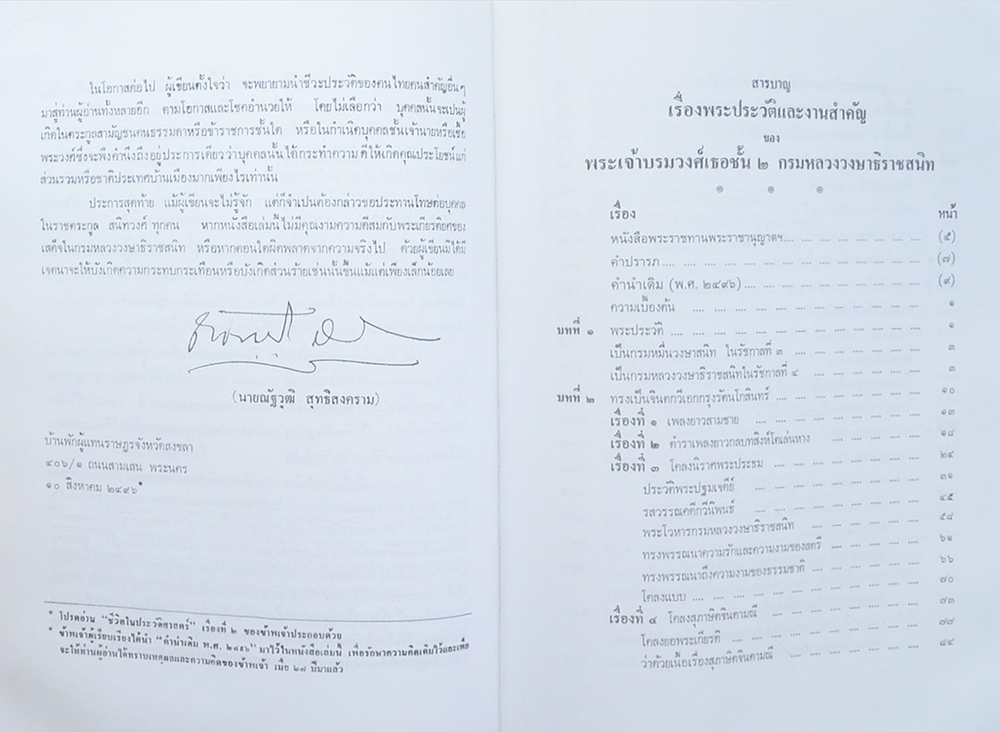 ในโอกาสต่อไป ผู้เขียนตั้งใจว่า จะพยายามนำชีวะประวัติของคนไทยคนสำคัญอื่นๆ
มาสู่ท่านผู้อ่านทั้งหลายอีก ตามโอกาสและโชคอำนวยให้ โดยไม่เลือกว่า บุคคลนั้นจะเป็นผู้
เกิดในตระกูลสามัญชนคนธรรมดาหรือข้าราชการชั้นใด หรือในกำเนิดบุคคลชั้นเจ้านายหรือเชื้อ
พระวงศ์ซึ่งจะพึงคำนึงถึงอยู่ประการเดียวว่าบุคคลนั้นได้กระทำความดีให้เกิดคุณประโยชน์แก่
ส่วนรวมหรือชาติประเทศบ้านเมืองมากเพียงไรเท่านั้น
ประการสุดท้าย แม้ผู้เขียนจะไม่รู้จัก แต่ก็จำเป็นต้องกล่าวขอประทานโทษต่อบุคคล
ในราชตระกูล สนิทวงศ์ ทุกคน หากหนังสือเล่มนี้ไม่มีคุณงามความดีสมกับพระเกียรติยศของ
เสด็จในกรมหลวงวงษาธิราชสนิท หรือหากตอนใดผิดพลาดจากความจริงไป ด้วยผู้เขียนมิได้มี
เจตนาจะให้บังเกิดความกระทบกระเทือนหรือบังเกิดส่วนร้ายเช่นนั้นขึ้นแม้แต่เพียงเล็กน้อยเลย
(นายณัฐวุฒิ สุทธิสงคราม)
บ้านพักผู้แทนราษฎรจังหวัดสงขลา
๔๐๖/๑ ถนนสามเสน พระนคร
๑๐ สิงหาคม ๒๔๙๖*
* โปรดอ่าน "ชีวิตในประวัติศาสตร์" เรื่องที่ ๒ ของข้าพเจ้าประกอบด้วย
* ข้าพเจ้าผู้เรียบเรียงได้นำ "คำนำเดิม พ.ศ. ๒๔๙๖" มาไว้ในหนังสือเล่มนี้ เพื่อรักษาความคิดเดิมไว้และเพื่อ
จะให้ท่านผู้อ่านได้ทราบเหตุผลและความคิดของข้าพเจ้า เมื่อ ๒๗ ปีมาแล้ว
สารบาญ
เรื่องพระประวัติและงานสำคัญ
ของ
พระเจ้าบรมวงศ์เธอชั้น ๒ กรมหลวงวงษาธิราชสนิท
๑ ๑ ๑
เรื่อง หน้า
หนังสือพระราชทานพระราชานุญาตฯ.... .... .... .... .... .... .... (๕)
คำปรารภ .... .... .... .... .... .... .... .... .... .... (๗)
คำนำเดิม (พ.ศ. ๒๔๙๖) .... .... .... .... .... .... .... .... (๙)
ความเบื้องต้น .... .... .... .... .... .... .... .... .... ๑
บทที่ ๑ พระประวัติ .... .... .... .... .... .... .... .... .... .... ๑
เป็นกรมหมื่นวงษาสนิท ในรัชกาลที่ ๓ .... .... .... .... .... .... ๓
เป็นกรมหลวงวงษาธิราชสนิทในรัชกาลที่ ๔ .... .... .... .... .... ๓
บทที่ ๒ ทรงเป็นจินตกวีเอกกรุงรัตนโกสินทร์ .... .... .... .... .... .... ๑๐
เรื่องที่ ๑ เพลงยาวสามชาย .... .... .... .... .... .... .... ๑๓
เรื่องที่ ๒ ตำราเพลงยาวกลบทสิงห์โตเล่นหาง .... .... .... .... .... ๑๘
เรื่องที่ ๓ โคลงนิราศพระประธม .... .... .... .... .... .... .... ๒๔
ประวัติพระปฐมเจดีย์ .... .... .... .... .... .... .... ๓๑
รสวรรณคดีกวีนิพนธ์ .... .... .... .... .... .... .... ๔๕
พระโวหารกรมหลวงวงษาธิราชสนิท .... .... .... .... .... ๕๘
ทรงพรรณนาความรักและความงามของสตรี .... .... .... .... .... ๖๑
ทรงพรรณนาถึงความงามของธรรมชาติ .... .... .... .... .... ๖๖
โคลงแบบ .... .... .... .... .... .... .... .... .... ๗๐
เรื่องที่ ๔ โคลงสุภาษิตจินดามณี .... .... .... .... .... .... .... ๗๓
โคลงยอพระเกียรติ .... .... .... .... .... .... .... ๗๗
ว่าด้วยเนื้อเรื่องสุภาษิตจินดามณี .... .... .... .... .... .... ๘๔